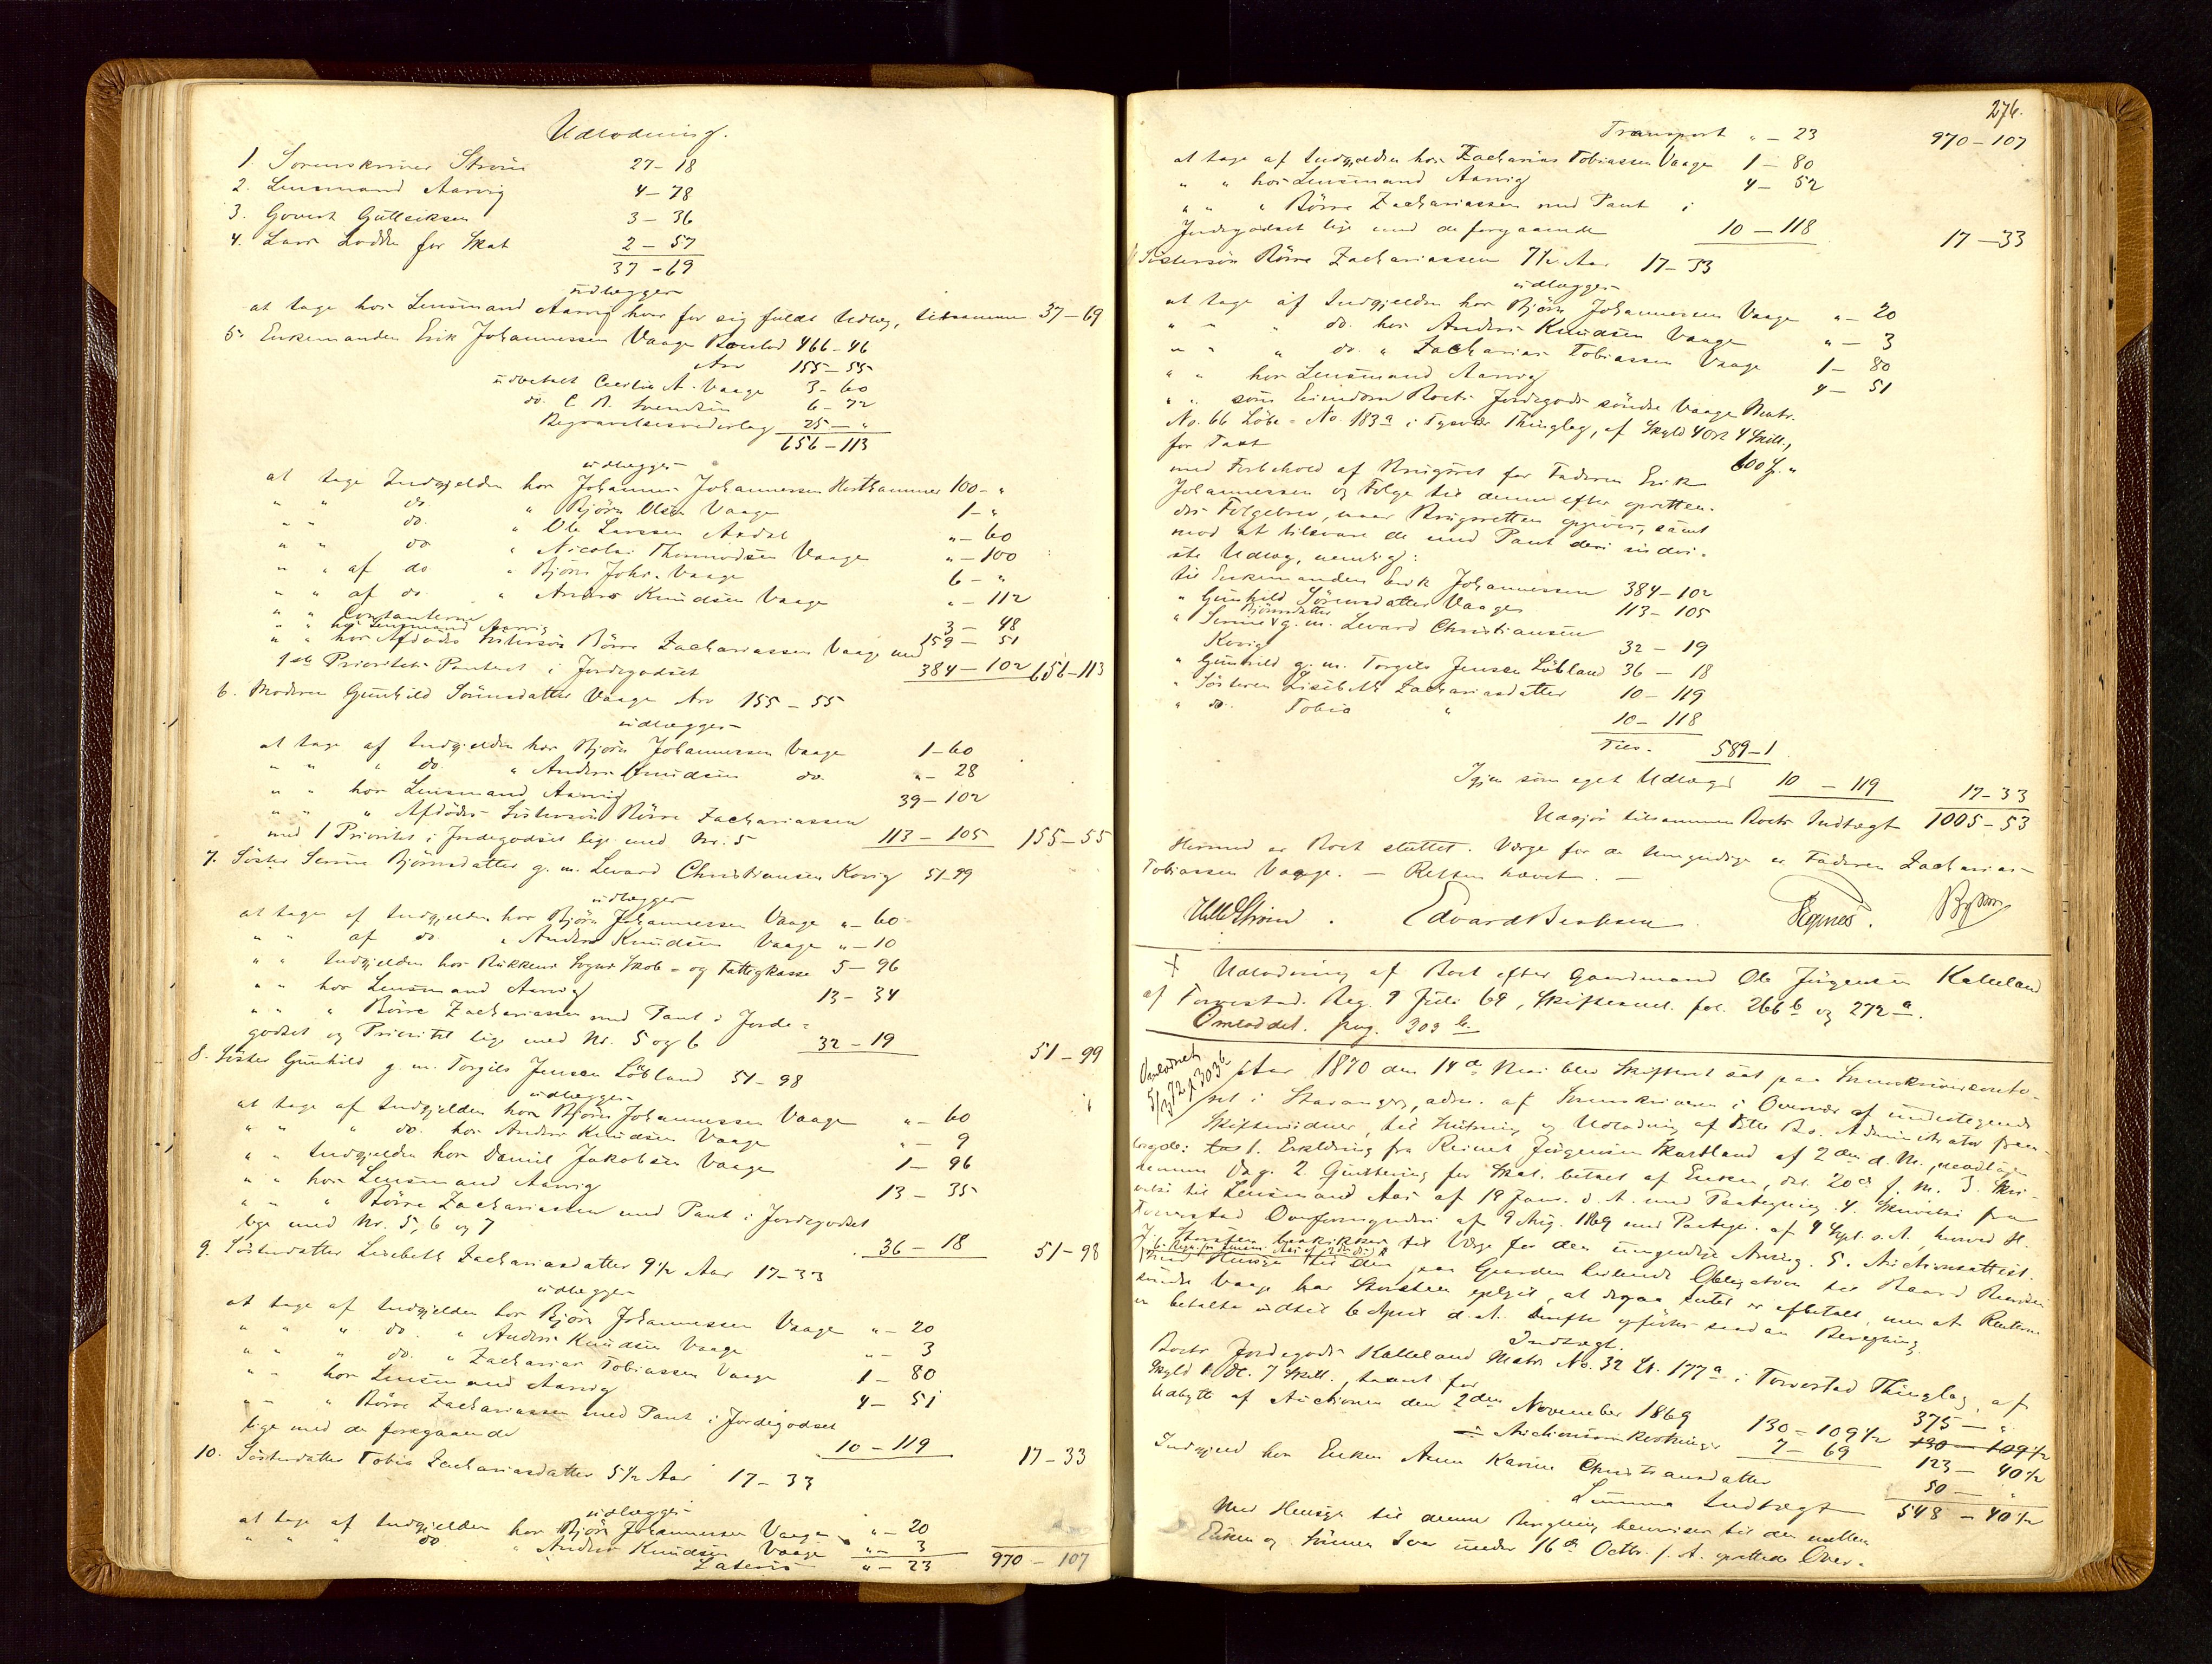 Udlodning.
1. Sorenskriver Strøm 27-18
2. Lensmand Aarvig 4-78
3. Govert Gulleiksen 3-36
4. Lars Lodde for Skat 2-57
37-69
udlægges
at tage hos Lensmand Aarvig hver for sig fuldt Udlæg, tilsammen 37-69
5. Enkemanden Erik Johannessen Vaage Boeslod 466-46
Arv 155-55
udbetalt Cecilia A. Vaage 3-60
do. C. B. Svendsen 6-72
Begravelsesvederlag 25 - "
656-113
udlægges
at tage Indgjelden hos Johannes Johannessen Hesthammer 100 - "
" " do " Bjørn Olsen Vaage 1 - "
" " do. " Ole Larssen Andal " - 60
" " do " Nicolai Thormodsen Vaage " - 100
" " af do " Bjørn Johs. Vaage 6 - "
" " af do " Anders Knudsen Vaage " - 112
" " Contanterne 3 - 48
" " hos Lensmand Aarvig 159 - 51
" " hos Afdødes Søstersøn Børre Zachariassen Vaage med
1ste Prioritets Panteret i Jordegodset 384-102 656-113
6. Moderen Gunhild Sørensdatter Vaage Arv 155-55
udlægges
at tage af Indgjelden hos Bjørn Johannessen Vaage 1-60
" " " do. " Anders Knudsen do. " - 28
" " hos Lensmand Aarvig 39-102
" " " Afdødes Søstersøn Børre Zachariassen
med 1 Prioritet i Jordegodset lige med Nr. 5 113-105 155-55
7. Søster Serine Bjørnsdatter g. m. Levard Christiansen Kovig 51-99
udlægges
at tage af Indgjelden hos Bjørn Johannessen Vaage " - 60
" " af do " Anders Knudsen Vaage " - 10
" " Indgjelden hos Bukkens Sogns Skole- og Fattigkasse 5-96
" " hos Lensmand Aarvig 13-34
" " " Børre Zachariassen med Pant i Jorde-
godset og Prioritet lige med Nr. 5 og 6 32-19 51-99
8. Søster Gunhild g. m. Torgils Jensen Løbland 51-98
udlægges
at tage af Indgjelden hos Bjørn Johannessen Vaage " - 60
" " " do. hos Anders Knudsen Vaage " - 9
" " Indgjelden hos Daniel Jakobsen Vaage 1-96
" " hos Lensmand Aarvig 13-35
" " " Børre Zachariassen med Pant i Jordegodset
lige med Nr. 5, 6 og 7 36-18 51-98
9. Søsterdatter Lisebeth Zachariasdatter 9½ Aar 17-33
udlægges
at tage af Indgjelden hos Bjørn Johannessen Vaage " - 20
" " " do. " Anders Knudsen Vaage " - 3
" " " do. " Zacharias Tobiassen Vaage 1-80
" " hos Lensmand Aarvig 4-51
" " " Børre Zachariassen med Pant i Jordegodset
lige med de foregaaende 10-119 17-33
10. Søsterdatter Tobia Zachariasdatter 5½ Aar 17-33
udlægges
at tage af Indgjelden hos Bjørn Johannessen Vaage " - 20
" " " do " Anders Knudsen Vaage " - 3
Lateris " - 23 970-107
276.
Transport " - 23 970-107
at tage af Indgjelden hos Zacharias Tobiassen Vaage 1-80
" " hos Lensmand Aarvig 4-52
" " " Børre Zachariassen med Pant i
Jordegodset lige med de foregaaende 10-118 17-33
Søstersøn Børre Zachariassen 7½ Aar 17-33
udlægges
at tage af Indgjelden hos Bjørn Johannessen Vaage " - 20
" " " do. hos Anders Knudsen Vaage " - 3
" " " do. " Zacharias Tobiassen Vaage 1-80
" " hos Lensmand Aarvig 4-51
" " som Eiendom Boets Jordegods søndre Vaage Matr.
No. 66 Løbe-No. 183a i Tysvær Thinglag, af Skyld 4 Ort 4 Skill.,
for Taxt 600 Sp. "
med Forbehold af Brugsret for Faderen Erik
Johannessen og Følge til denne efter opretten-
des Følgebrev, naar Brugsretten opgives, samt
mod at tilsvare de med Pant deri indvi-
ste Udlæg, nemlig:
til Enkemanden Erik Johannessen 384-102
" Gunhild Sørensdatter Vaage 113-105
" Serine Bjørnsdatter g. m. Levard Christiansen
Kovig 32-19
" Gunhild g. m. Torgils Jensen Løbland 36-18
" Søsteren Lisebeth Zachariasdatter 10-119
" do. Tobia " 10-118
Tils. 589-1
Igjen som eget Udlæg 10-119 17-33
Udgjør tilsammen Boets Indtægt 1005-53
Hermed er Boet sluttet. Værge for de umyndige er Faderen Zacharias
Tobiassen Vaage. - Retten hævet. -
Edvard Berntsen
+ Udlodning af Boet efter Gaardmand Ole Jørgensen Kalleland
af Torvestad. Reg. 9 Juli 69, Skiftesml. fol. 266b og 272a.
Omloddet. pag. 303b.
Omloddet 5/3 72 f 303b
Aar 1870 den 14de Mai blev Skifteret sat paa Sorenskriverconto-
ret i Stavanger, adm. af Sorenskriveren i Overvær af undertegnede
Skiftevidner, til Slutning og Udlodning af dette Bo. Administrator frem-
lagde: 1. Erklæring fra Reinert Jørgensen Skartland af 2den d. M.,
2. Quittering for Skat, betalt af Enken, dat. 20de f. M. 3. Skri-
velse til Lensmand Aas af 19 Janr. d. A. med Paategning. 4. Skrivelse fra
Torvestad Overformynderi af 9 Aug. 1869 med Paategn. af 4 Sept. s. A. hvorved
til Værge for den umyndige Arving. 5. Auctionsattest.
Med Hensyn til den paa Gaarden heftende Obligation til Baard
søndre Vaage har oplyst, at derpaa Intet er afbetalt, men at Renterne
er betalte indtil 6 April d. A. Derefter opførtes saadan Beregning
Indtægt.
Boets Jordegods Kalleland Matr. No. 32 Lb. 177a i Torvestad Thinglag, af
Skyld 7 Skill. taxeret for 375 - "
Udbytte af Auctionen den 2den November 1869 130-109½ 130-109½
÷ Auctionsomkostninger 7-69 123-40½
Indgjeld hos Enken Anna Karine Christiansdatter 50 - "
Summa Indtægt 548-40½
Med Hensyn til denne henvises til den mellem
Enken og Sønnen under 16de Octbr. f. A. oprettede Over-